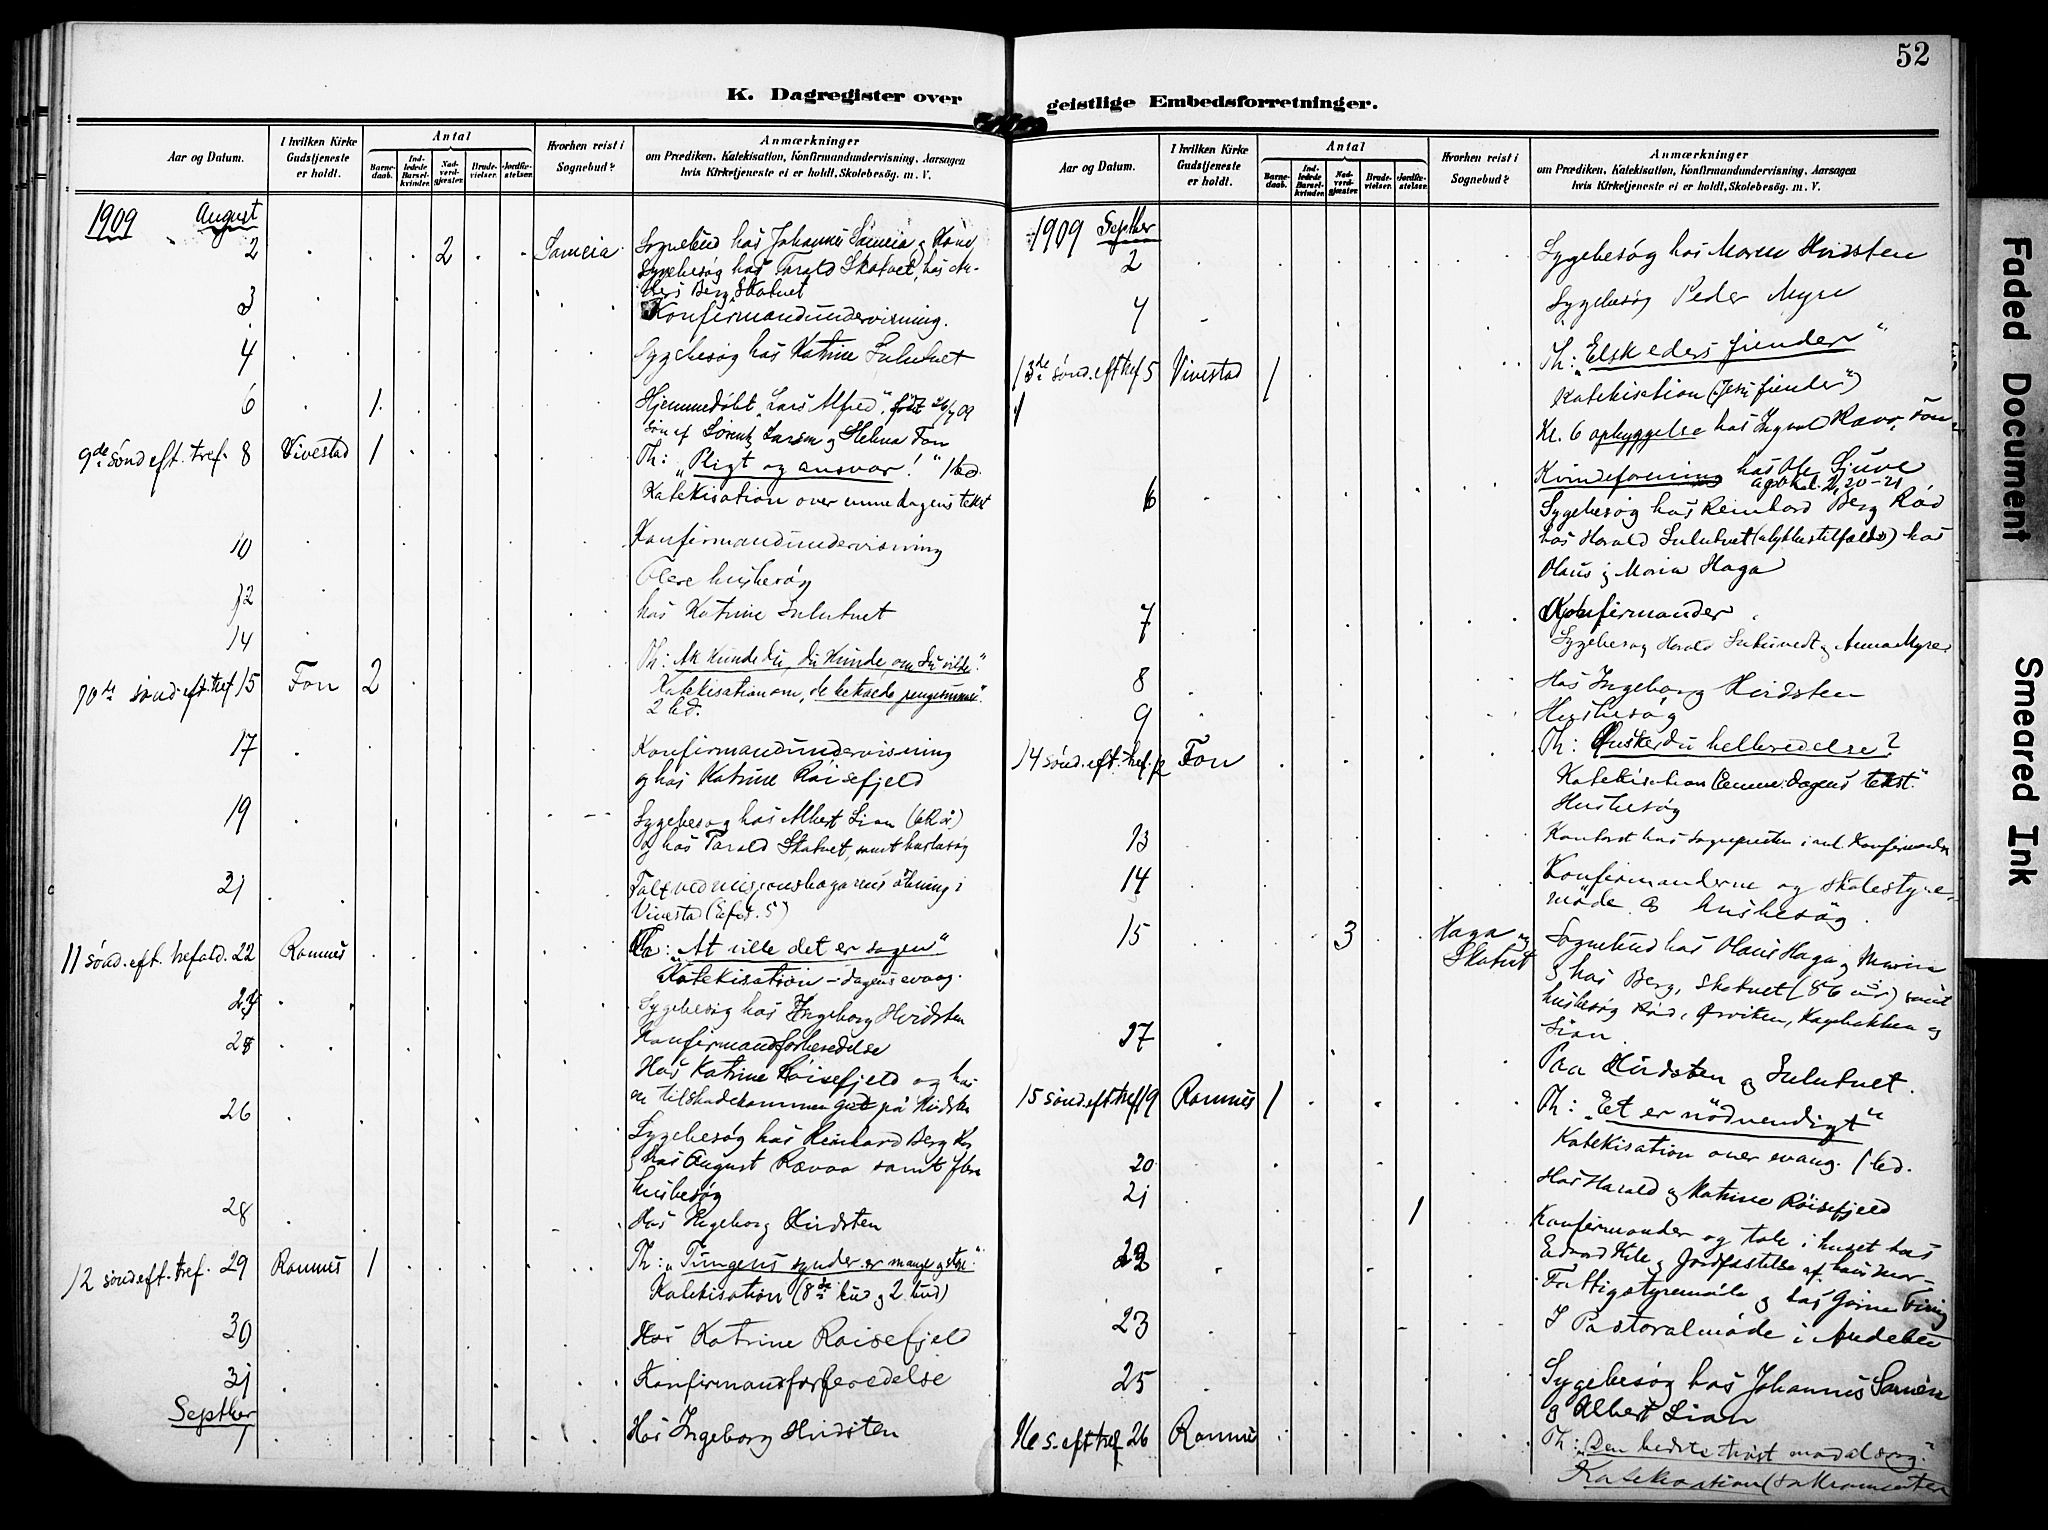 52
K. Dagregister over geistlige Embedsforretninger.
Aar og Datum.
I hvilken Kirke Gudstjeneste er holdt.
Antal
Barnedaab.
Indledede Barselkvinder.
Nadverdgjester.
Brudevielser.
Jordfæstelser.
Hvorhen reist i Sognebud?
Anmærkninger
om Prædiken, Katekisation, Konfirmandundervisning, Aarsagen
hvis Kirketjeneste ei er holdt, Skolebesög. m. V.
1909 August
2 2 Sameia Sognebud hos Johannes Sameia og Kone
Sygebesøg hos Tarald Skatvet, hos An-
ders Berg, Skatvet
3 Konfirmandundervisning.
4 Sygebesøg hos Katrine
6 1 Hjemmedøbt "Lars Alfred", født 26/7 09
søn af Sørent Larsen og Helena Fon
9de sønd eft. tref. 8 Vivestad 1 Th: "Pligt og ansvar!"
Katekisation over emne dagens tekst
10 Konfirmandundervisning
12 Flere husbesøg
14 hos Katrine
10de sønd. eft. tref 15 Fon 2 Th: Ak kunde du, du kunde om du vilde"
Katekisation om, de betroede
17 Konfirmandundervisning
og hos Katrine Röisefjeld
19 Sygebesøg hos Albert Lian
og hos Tarald Skatvet, samt husbesøg
21
Vivestad
11 sønd. eft. trefold. 22 Ramnes Th: "At ville det er sagen"
Katekisation – dagens evang.
Sygebesøg hos Ingeborg Hvidsten
Konfirmandforberedelse
Hos Katrine Röisefjeld og hos
en tilskadekommen gut på Hvidsten
26 Sygebesøg hos Reinhard Berg
og hos August Ravaa samt flere
husbesøg
28 Hos Ingeborg Hvidsten
12 sønd eft. tref. 29 Ramnes 1 Th: "Tungens synder er mange og store"
Katekisation (8de bud og 2. bud)
30 Hos Katrine Röisefjeld
31 Konfirmandforberedelse
Septber
1 Hos Ingeborg Hvidsten
Aar og Datum.
I hvilken Kirke Gudstjeneste er holdt.
Antal
Barnedaab.
Indledede Barselkvinder.
Nadverdgjester.
Brudevielser.
Jordfæstelser.
Hvorhen reist i Sognebud?
Anmærkninger
om Prædiken, Katekisation, Konfirmandundervisning, Aarsagen
hvis Kirketjeneste ei er holdt, Skolebesög. m. V.
1909 Septber
2 Sygebesøg hos Maren Hvidsten
4 Sygebesøg Peder Myre
13de sønd. eft tref 5 Vivestad 1 Th: "Elsk eders fiender"
Katekisation (Jesu fiender")
Kl. 6 opbyggelse hos Ravo, Fon
6 Kvindeforening hos Ole Gjuve
20-21
Sygebesøg hos Reinhard Berg Råd
hos Harald (ulykkestilfælde) hos
Olaus og Maria Haga
7 Konfirmander
Sygebesøg Harald og Anna Myre
8 Hos Ingeborg Hvidsten
9 Husbesøg
14 sønd. eft. tref. 12 Fon Th: Ønsker du helbredelse?
Katekisation (Emne: dagens tekst."
Husbesøg
13 Konfirmander
14 Konfirmanderne og skolestyre-
møde og husbesøg.
15 3 Haga og Skatvet Sognebud hos Olaus Haga og Maria
og hos Berg, Skatvet (86 år) samt
husbesøg Råd, Ørviken, og
Lian.
17 Paa Hvidsten og
15 sønd. eft tref 19 Ramnes 1 Th: "Et er nødvendigt"
Katekisation over evang.
20 Hos Harald og Katrine Röisefjeld
21 1 Konfirmander og tale i huset hos
og Jordfæstelse af hans mor-
22 Fattigstyremöde og hos
23 I Pastoralmøde i Andebu
25 Sygebesøg hos Johannes Sameia
og Albert Lian
16 s. eft tref 26 Ramnes Th: "Den bedste trøst mod al sorg."
Katekisation (Sakramenter
Faded Document
Smeared Ink